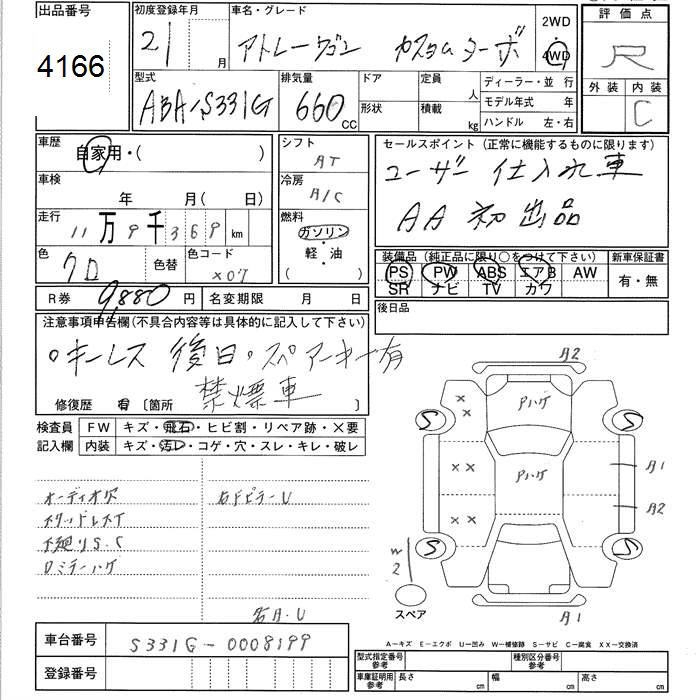 出品番号 初度登録年月 車名・グレード 2WD 評価点
4166 21 月 アトレーワゴン カスタムターボ 4WD R
型式 排気量 ドア 定員 人 ディーラー・並行 外装 内装
ABA-S331G 660 CC 形状 積載 kg モデル年式 年 C
ハンドル 左・右
車歴 自家用・( ) シフト AT セールスポイント(正常に機能するものに限ります)
車検 年 月( 日) 冷房 A/C ユーザー仕入れ車
走行 11万9千369 km 燃料 ガソリン・軽・油 ( ) AA初出品
色 クロ 色替 色コード X07 装備品(純正品に限り○をつけて下さい) 新車保証書
PS PW ABS エアB AW 有・無
SR ナビ TV カワ
R券 9,880 円 名変期限 月 日 後日品
注意事項申告欄(不具合内容等は具体的に記入して下さい)
○キーレス後日・スペアーキー有
禁煙車
修復歴 有 〔箇所 〕
検査員 FW キズ・飛石・ヒビ割・リペア跡・X要
記入欄 内装 キズ・汚レ・コゲ・穴・スレ・キレ・破レ
オーディオ欠 右Fピラー・U
下廻りS.C
A2
アハゲ
S S
XX
XX アハゲ A1
XX A2
S S
W2
スペア A1
車台番号 S331G-0008199
登録番号
A-キズ E-エクボ U-凹み W-補修跡 S-サビ C-腐食 XX-交換済
型式指定番号 参考 種別区分番号 参考
車庫証明用 参考 長さ cm 幅 cm 高さ cm